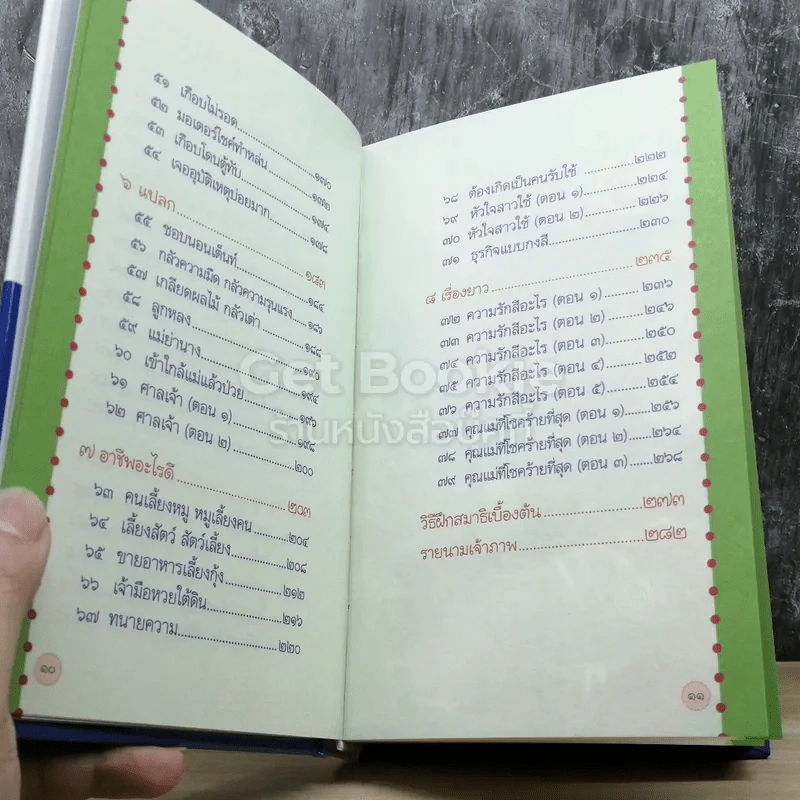 ๕๑ เกือบไม่รอด...๑๗๐
๕๒ มอเตอร์ไซค์ทำหล่น...๑๗๒
๕๓ เกือบโดนตู้ทับ...๑๗๔
๕๔ เจออุบัติเหตุบ่อยมาก...๑๗๘
๖ แปลก...๑๘๓
๕๕ ชอบนอนเต็นท์...๑๘๔
๕๖ กลัวความมืด กลัวความรุนแรง...๑๘๖
๕๗ เกลียดผลไม้ กลัวเต่า...๑๘๘
๕๘ ลูกหลง
๕๙ แม่ย่านาง
๖๐ เข้าใกล้แม่แล้วป่วย...๑๙๔
๖๑ ศาลเจ้า (ตอน ๑)...๑๙๖
๖๒ ศาลเจ้า (ตอน ๒)...๑๙๘
๒๐๐
๗ อาชีพอะไรดี...๒๐๓
๖๓ คนเลี้ยงหมู หมูเลี้ยงคน...๒๐๔
๖๔ เลี้ยงสัตว์ สัตว์เลี้ยง...๒๐๘
๖๕ ขายอาหารเลี้ยงกุ้ง...๒๑๒
๖๖ เจ้ามือหวยใต้ดิน...๒๑๖
๖๗ ทนายความ...๒๒๐
๑๐
๖๘ ต้องเกิดเป็นคนรับใช้...๒๒๒
๖๙ หัวใจสาวใช้ (ตอน ๑)...๒๒๔
๗๐ หัวใจสาวใช้ (ตอน ๒)...๒๒๖
๗๑ ธุรกิจแบบกงสี...๒๓๐
๘ เรื่องยาว...๒๓๕
๗๒ ความรักสีอะไร (ตอน ๑)...๒๓๖
๗๓ ความรักสีอะไร (ตอน ๒)...๒๔๖
๗๔ ความรักสีอะไร (ตอน ๓)...๒๕๐
๗๕ ความรักสีอะไร (ตอน ๔)...๒๕๒
๗๖ ความรักสีอะไร (ตอน ๕)...๒๕๔
๗๗ คุณแม่ที่โชคร้ายที่สุด (ตอน ๑)...๒๕๖
๗๘ คุณแม่ที่โชคร้ายที่สุด (ตอน ๒)...๒๖๔
๗๙ คุณแม่ที่โชคร้ายที่สุด (ตอน ๓)...๒๖๘
วิธีฝึกสมาธิเบื้องต้น...๒๗๓
รายนามเจ้าภาพ...๒๘๒
๑๑
Get Bookie